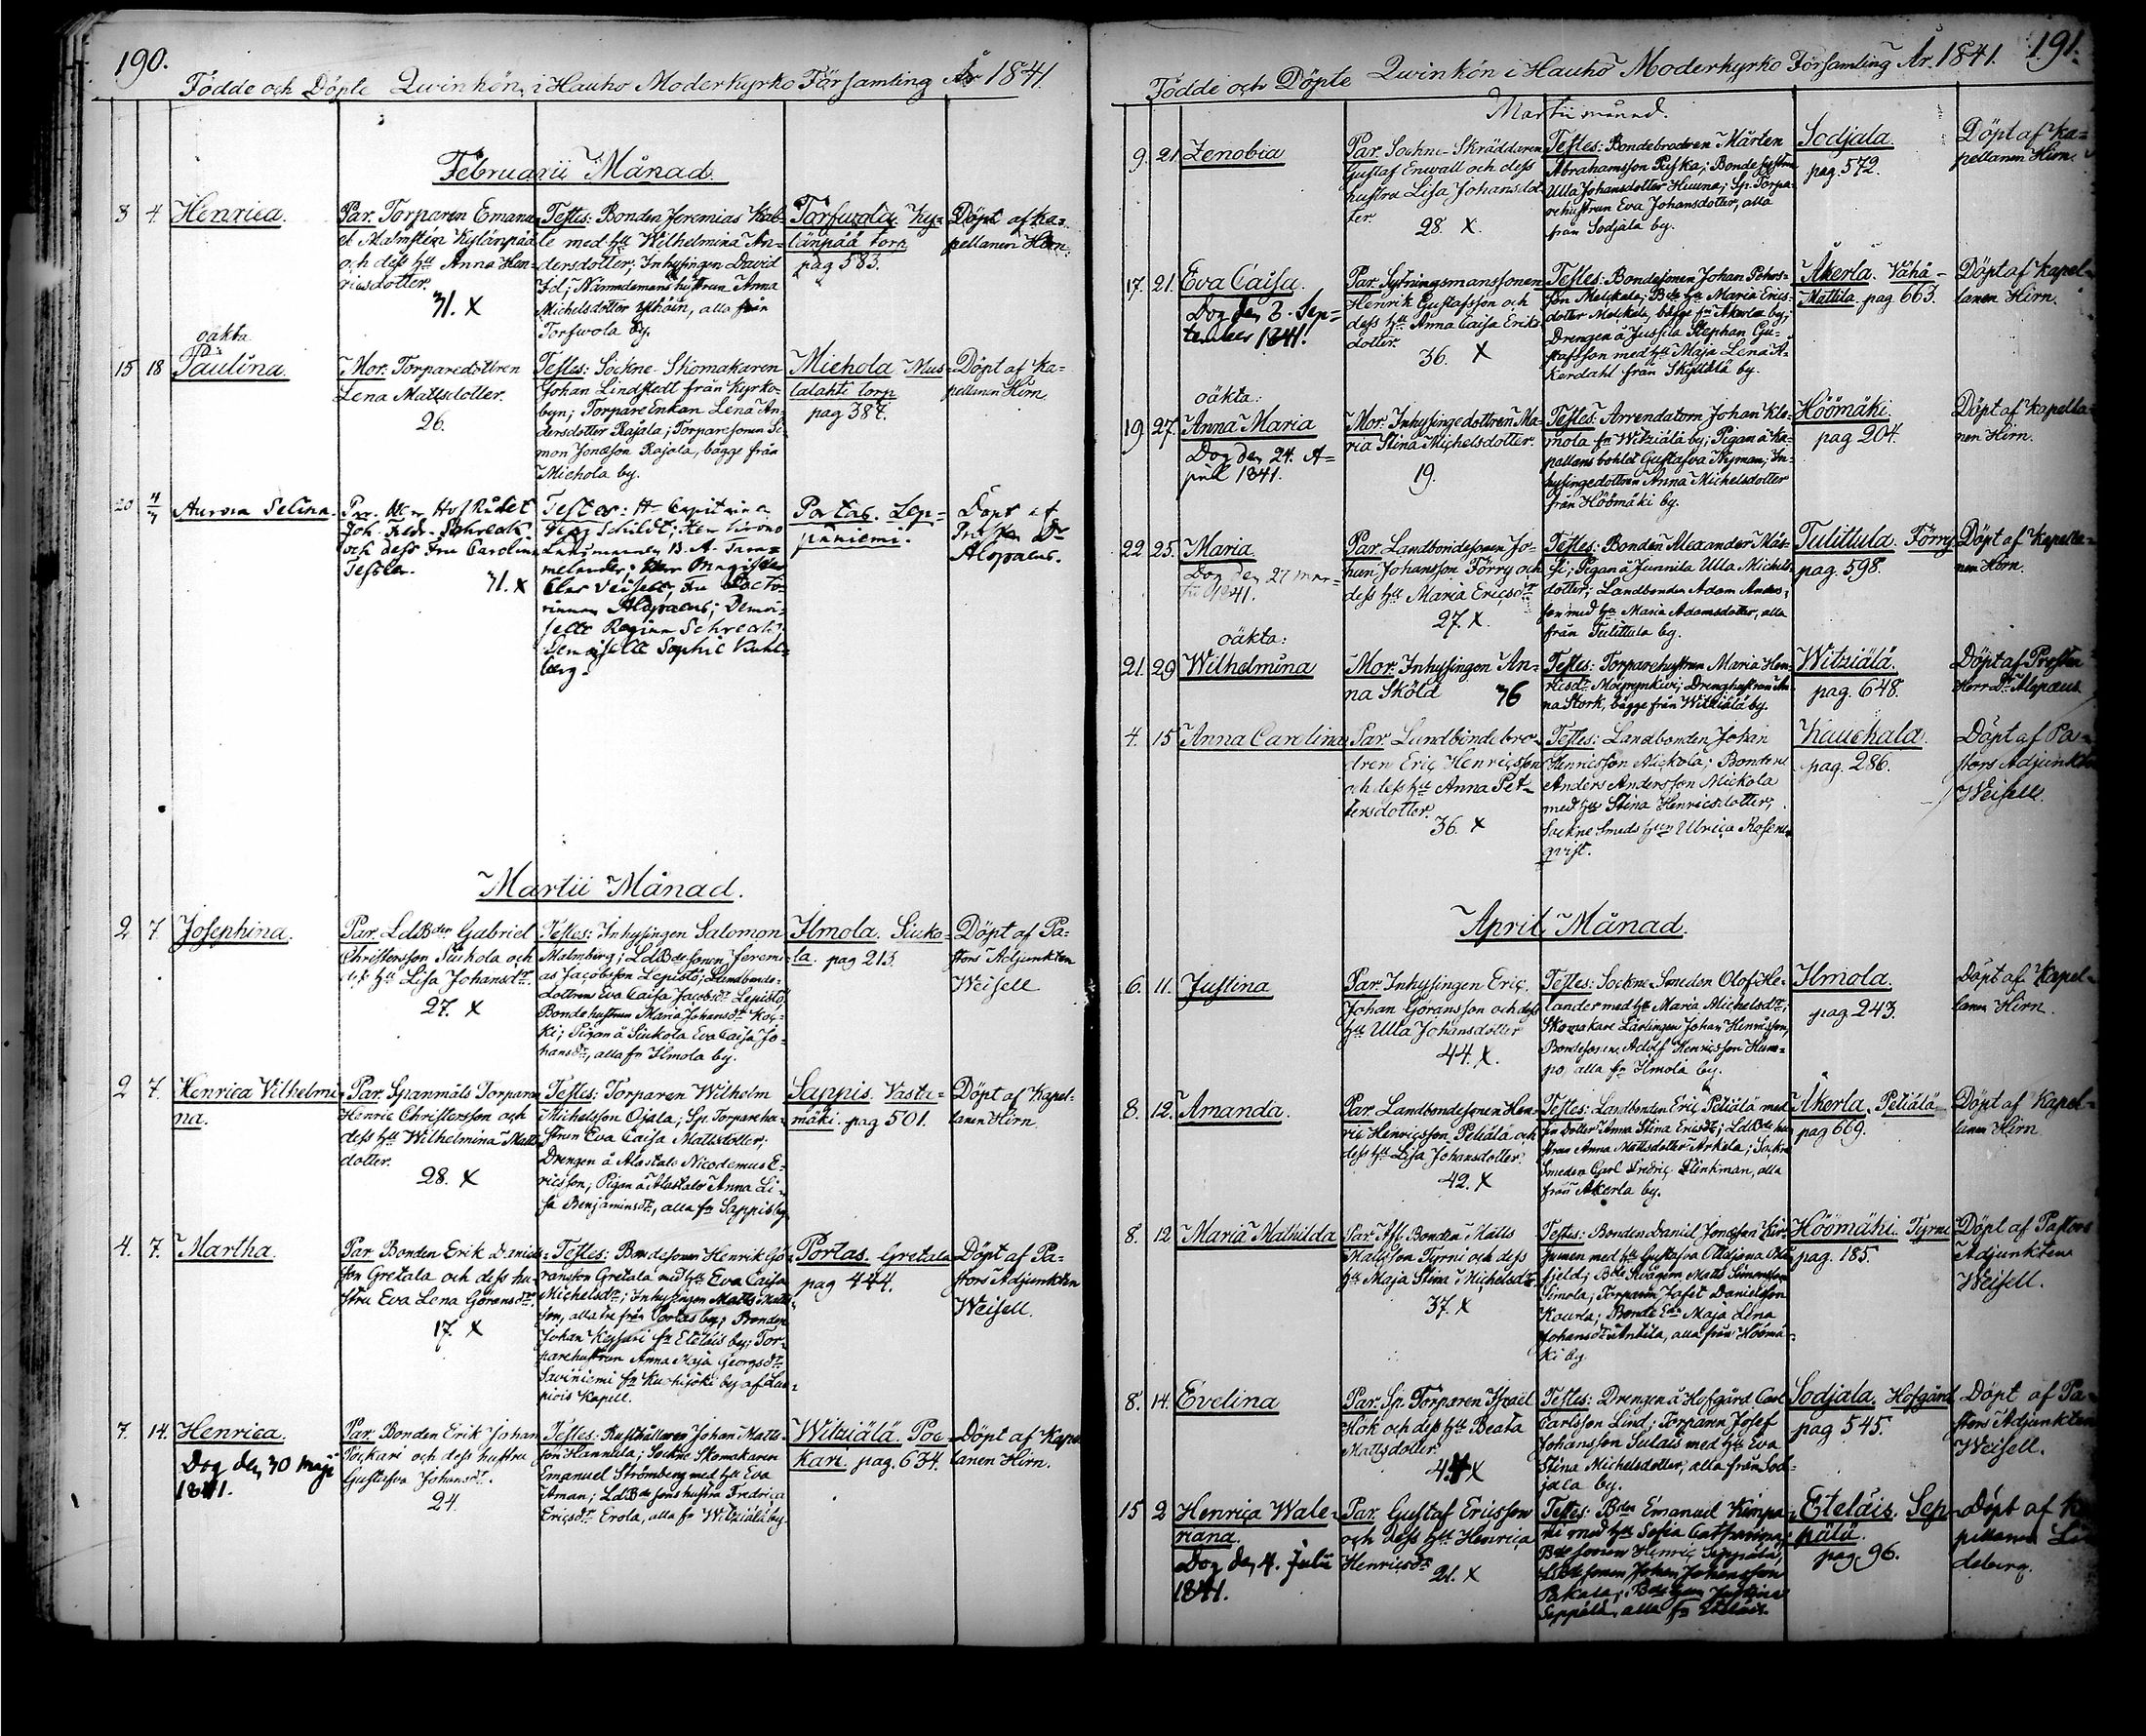 190.
Födde och Döpte Qwinkön i Hauho Moderkyrko Församling År 1841.
Februarii Månad.
8 4 Henrica.
Par. Torparen Emanu-
el Malmstén Kylänpää
och dess hu Anna Hen-
ricsdotter.
31. X
Testes: Bonden Jeremias
med hu Wilhelmina An-
dersdotter; Inhysingen David
Nämndemans hustrun Anna
Michelsdotter alla från
Torfwola by.
Torfwola. Ky-
länpää torp
pag 583.
Döpt af Ka-
pellanen Hirn.
oäkta
15 18 Paulina.
Mor. Torparedottren
Lena Mattsdotter.
26.
Testes: Sockne-Skomakaren
Johan Lindstedt från Kyrko-
byn; TorpareEnkan Lena An-
dersdotter Rajala; Torparesonen Si-
mon Jonasson Rajala, bägge från
Miehola by.
Miehola Mus-
talahti torp
pag 384.
Döpt af Ka-
pellanen Hirn
20 4/3 Aurora Selina.
Par. Herr HofRådet
Joh. Fredr. Schreck
och dess Fru Carolina
Tesche.
31. X
Testes: Hr Capitaine
Schildt; Herr Krono
Länsmannen B. A. Tam-
melander; Herr Magister
Clas Veisell, Fru Docto-
rinnan Alopaeus; Demoi-
selle Regina Schreck;
Demoiselle Sophie Kuhl-
berg.
Portas. Lep-
päniemi.
Döpt af
Prosten Dr
Alopaeus.
Martii Månad.
2 7 Josephina.
Par. LdBden Gabriel
Christersson Siukola och
dess hu Lisa Johansdr.
27. X
Testes: Inhysingen Salomon
Malmberg; LdBdesonen Jeremi-
as Jacobsson Lepistö; Landbonde-
dottren Eva Caisa Jacobsdr Lepistö;
Bondehustrun Maria Johansdr Kos-
ki; Pigan å Siukola Eva Caisa Jo-
hansdr, alla fr Ilmola by.
Ilmola. Siuko-
la. pag 213.
Döpt af Pa-
stors Adjunkten
Weisell
2 7. Henrica Vilhelmi-
na.
Par. Spanmåls Torparen
Henric Christersson och
dess hu Wilhelmina Matts-
dotter.
28. X
Testes: Torparen Wilhelm
Michelsson Ojala; Sp. Torparehu-
strun Eva Caisa Mattsdotter;
Drengen å Alastalo Nicodemus E-
ricsson; Pigan å Alastalo Anna Li-
sa Benjaminsdr, alla fr Sappis by.
Sappis. Vastu-
mäki. pag 501.
Döpt af Kapel-
lanen Hirn.
4. 7. Martha.
Par. Bonden Erik Daniels-
son Gretala och dess hu-
stru Eva Lena Göransdr.
17. X
Testes: Bondesonen Henrik Gö-
ransson Gretala med hu Eva Caisa
Michelsdr; Inhysingen Matts Matts-
son, alla tre från Portas by; Bonden
Johan Keysari fr Eteläis by; Tor-
parehustrun Anna Maja Georgsdr
Saviniemi fr Kuohijoki by af Luo-
piois Kapell.
Portas. Gretala
pag 444.
Döpt af Pa-
stors Adjunkten
Weisell.
7. 14. Henrica.
Dog den 30 Maji
1841.
Par. Bonden Erik Johan
Pöckäri och dess hustru
Gustafva Johansdr.
24.
Testes: Rusthållaren Johan Matts-
son Hannula; Sockne Skomakaren
Emanuel Strömberg med hu Eva
Aman; LdBdesons hustru Fredrica
Ericsdr Erola, alla fr Witziälä by.
Witziälä. Pöc-
kari. pag. 634.
Döpt af Kapel-
lanen Hirn.
191.
Födde och Döpte Qwinkön i Hauho Moderkyrko Församling År. 1841.
Martii månad.
9. 21 Zenobia
Par. Sockne-Skräddaren
Gustaf Enwall och dess
hustru Lisa Johansdot-
ter
28. X.
Testes: Bondebrodren Mårten
Abrahamsson Ryska; Bondesystren
Ulla Johansdotter Huuna; Sp. Torpa-
rehustrun Eva Johansdotter, alla
från Sodjala by.
Sodjala.
pag. 572.
Döpt af Ka-
pellanen Hirn.
17. 21. Eva Caisa.
Dog den 3. Sep-
tember 1841.
Par. Sytningsmanssonen
Henrik Gustafsson och
dess hu Anna Caisa Ericks-
dotter.
36. X
Testes: Bondesonen Johan Pehrs-
son Meickala; Bde hu Maria Erics-
dotter Meickala, bägge fr Åkerla by;
Drengen å Jussila Stephan Gu-
stafsson med hu Maja Lena Å-
kerdahl från Skyttälä by.
Åkerla. Vähä-
Mattila. pag. 663.
Döpt af Kapel-
lanen Hirn.
oäkta:
19. 27. Anna Maria
Dog den 24. A-
pril 1841.
Mor. Inhysingedottren Ma-
ria Stina Michelsdotter.
19.
Testes: Arrendatorn Johan Kle-
mola fr Witziälä by; Pigan å Ka-
pellans bohlet Gustafva Nyman; In-
hysingedottren Anna Michelsdotter
från Höömäki by.
Höömäki.
pag 204.
Döpt af Kapella-
nen Hirn.
22 25. Maria
Dog den 27 mar-
tii 1841.
Par. Landbondesonen Jo-
han Johansson Törry och
dess hu Maria Ericsdr
27. X.
Testes: Bonden Alexander Mås-
si; Pigan å Junnila Ulla Michels-
dotter; Landbonden Adam Anders-
son med hu Maria Adamsdotter, alla
från Tulittula by.
Tulittula. Törry
pag. 598.
Döpt af Kapella-
nen Hirn.
oäkta:
21. 29 Wilhelmina
Mor. Inhysingen An-
na Sköld 36
Testes: Torparehustrun Maria Hen-
ricsdr Drenghustrun An-
na Stork, bägge från Witziälä by.
Witziälä.
pag. 648.
Döpt af Prosten
Herr Dr Alopaeus
4. 15 Anna Carolina
Par. Landbondebro-
dren Eric Henricsson
och dess hu Anna Pet-
tersdotter.
36. X
Testes: Landbonden Johan
Henricsson Mickola; Bonden
Anders Andersson Mickola
med hu Stina Henricsdotter;
Sockne Smeds hun Ulrica Rosen-
qvist.
Kauchala.
pag. 286.
Döpt af Pa-
stors Adjunkten
Weisell.
April Månad.
6. 11. Justina
Par. Inhysingen Eric
Johan Göransson och dess
hu Ulla Johansdotter
44. X.
Testes: Sockne Smeden Olof He-
lander med hu Maria Michelsdr;
Skomakare Lärlingen Johan Henricsson,
Bondesonen Adolf Henricsson Hum-
po, alla fr Ilmola by.
Ilmola.
pag 243.
Döpt af Kapel-
lanen Hirn.
8. 12. Amanda.
Par. Landbondesonen Hen-
ric Henricsson Peliälä och
dess hu Lisa Johansdotter.
42. X
Testes: Landbonden Eric Peliälä med
sin dotter Anna Stina Ericsdr; LdBde hu-
strun Anna Mattsdotter Arkela; Sockne
Smeden Carl Fridric Flinkman, alla
från Åkerla by.
Åkerla. Peliälä
pag 669.
Döpt af Kapel-
lanen Hirn
8. 12 Maria Mathilda
Par. Afs. Bonden Matts
Mattsson Tyrni och dess
hu Maja Stina Michelsdr
37. X
Testes: Bonden Daniel Jonasson
med hu Gustafva
Bde Swågern Matts Simonsson
Simola; Torparen Jafet Danielsson
Kourla; Bonde Enk. Maja Lena
Johansdr Anttila, alla från Höömä-
ki by.
Höömäki. Tyrni
pag. 185.
Döpt af Pastors
Adjunkten
Weisell.
8. 14. Evelina
Par. Sp. Torparen Israel
Hök och dess hu Beata
Mattsdotter.
44 X
Testes: Drengen å Hofgård Carl
Carlsson Lind; Torparen Josef
Johansson Sulais med hu Eva
Stina Michelsdotter, alla från Sod-
jala by.
Sodjala. Hofgård
pag 545.
Döpt af Pa-
stors Adjunkten
Weisell.
15 2 Henrica Wale-
riana.
Dog den 4. Julii
1841.
Par. Gustaf Ericsson
och dess hu Henrica
Henricsdr
21. X
Testes: Bden Emanuel Kimpa-
ri med hu Sofia Catharina;
Bdesonen Henric Seppälä;
LdBdesonen Johan Johansson
Pakala; Bde hun Justina
Seppälä, alla fr Eteläis.
Eteläis. Sep-
pälä.
pag 96.
Döpt af Ka-
pellanen Lin-
deberg.